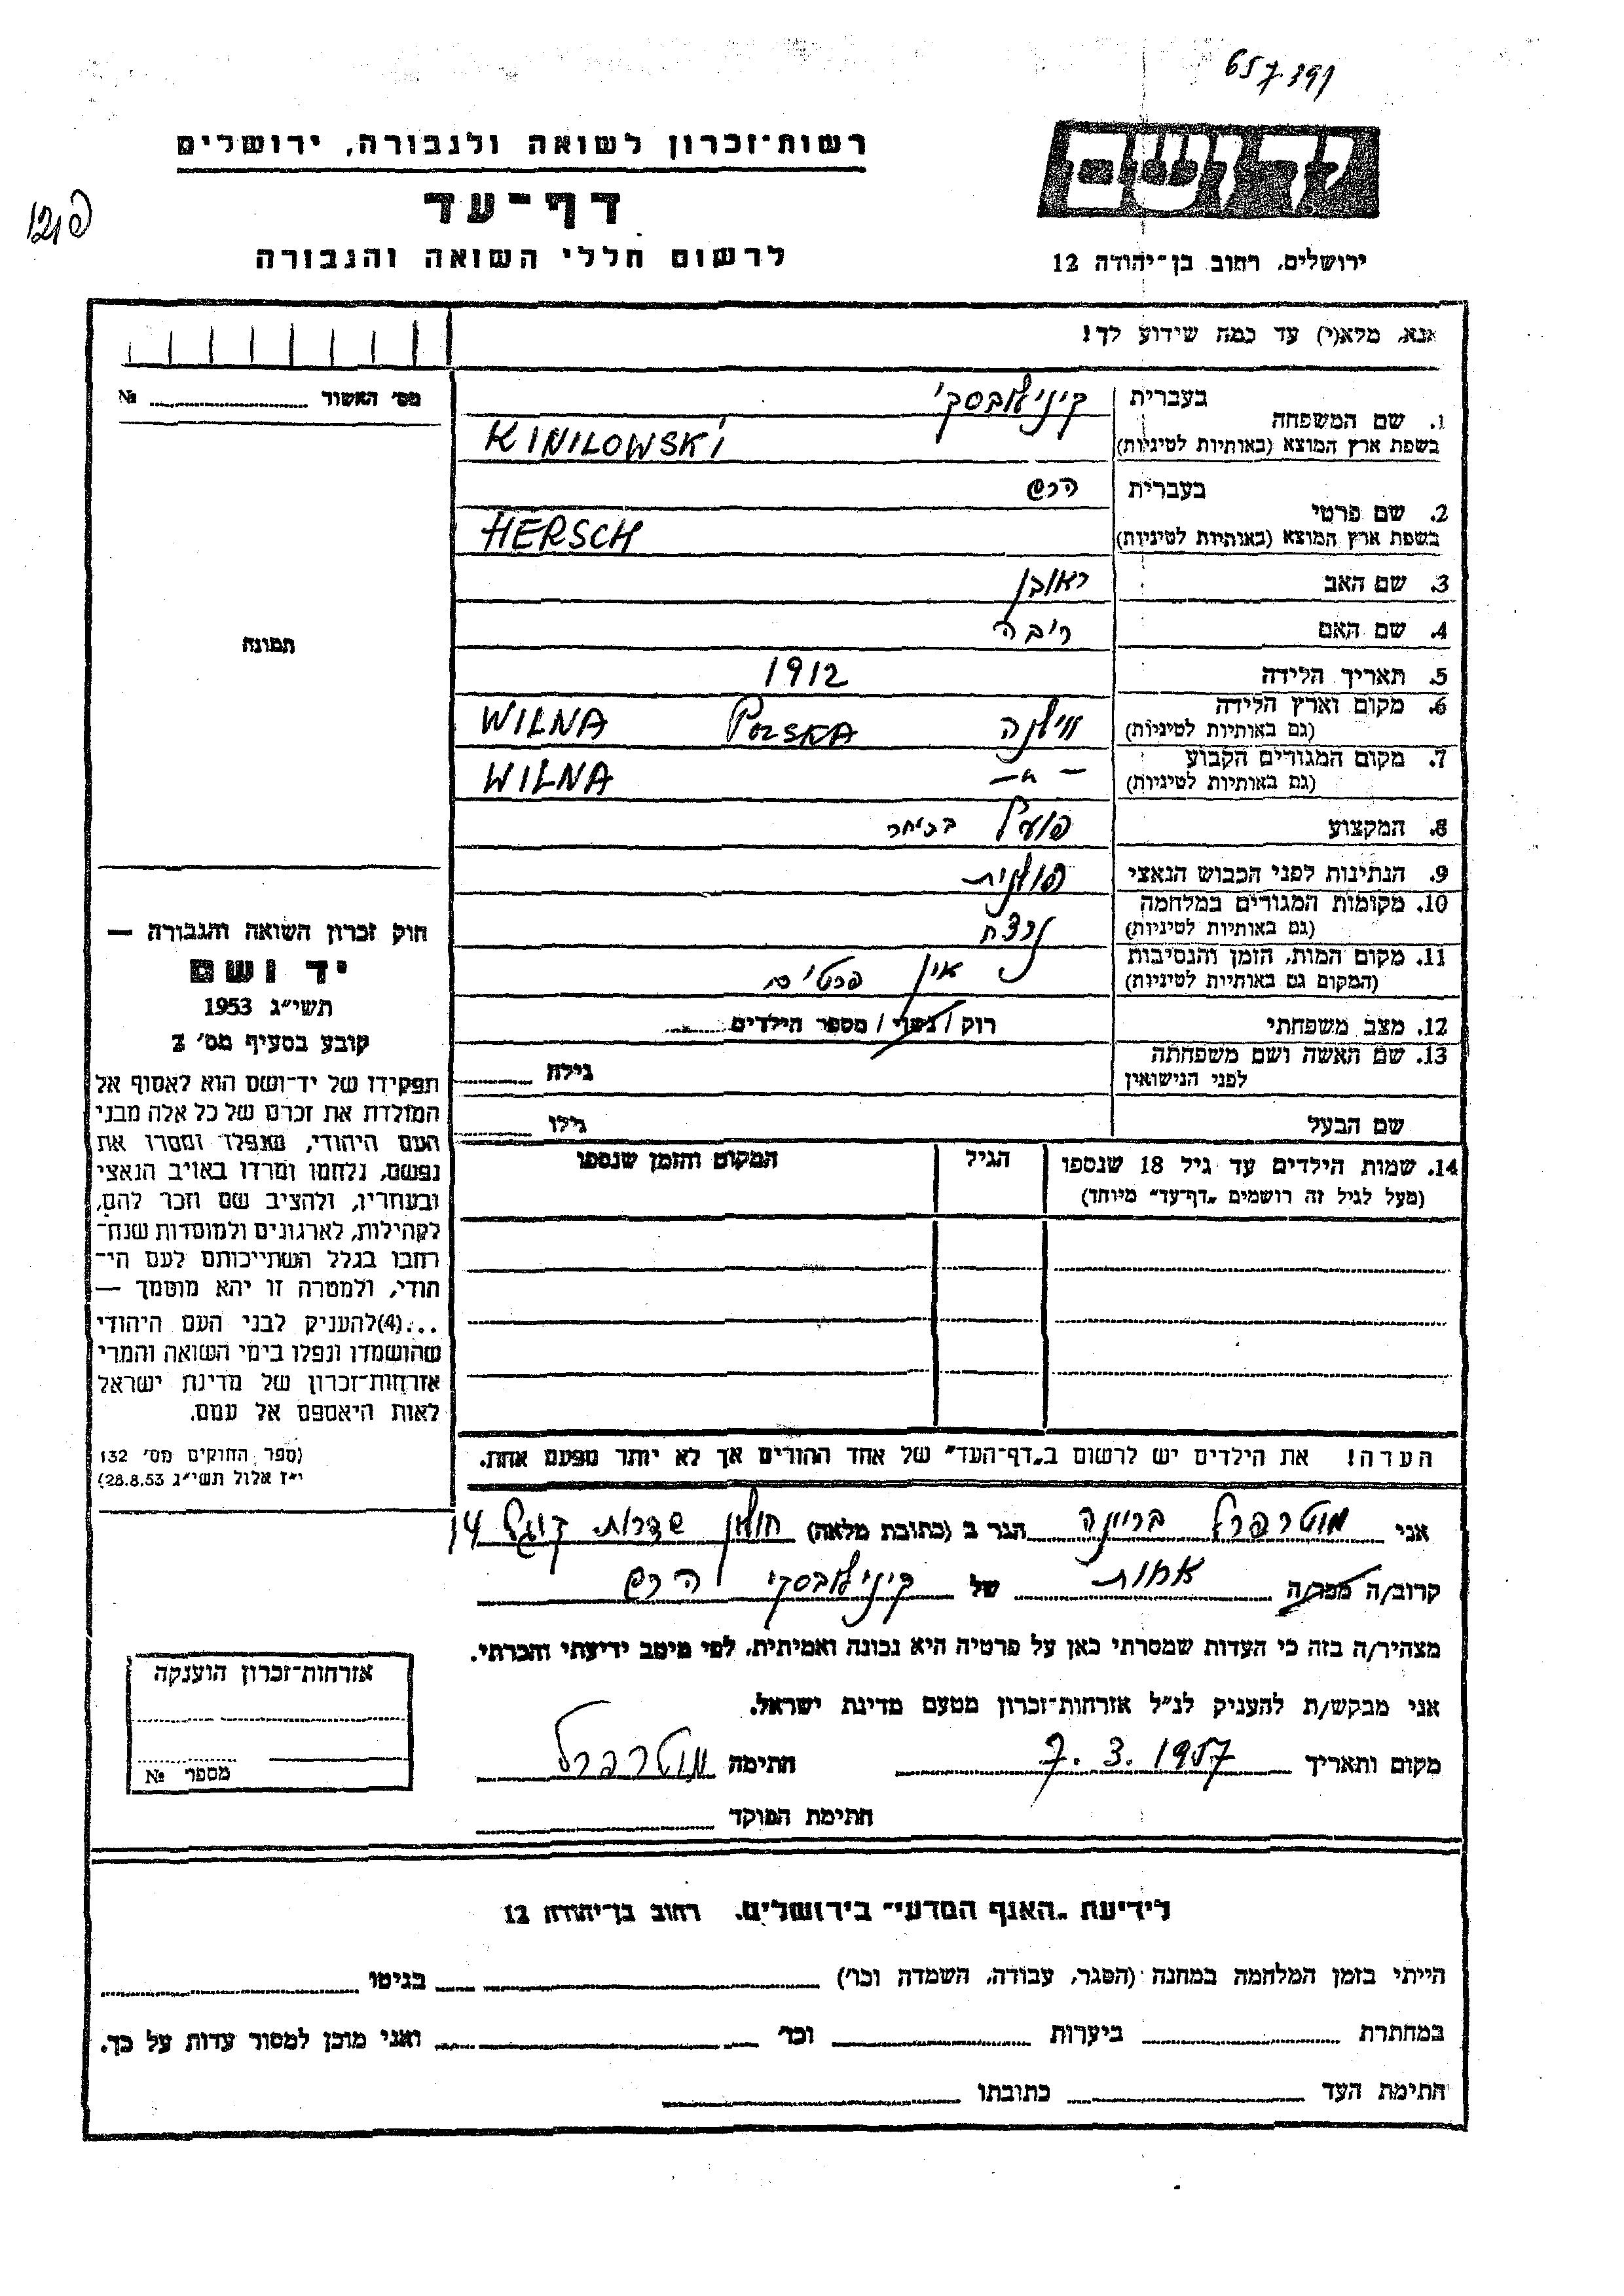 657391
רשות-זכרון לשואה ולגבורה, ירושלים
דף-עד
לרשום חללי השואה והגבורה
ירושלים, רחוב בן-יהודה 12
אנא, מלא(י) עד כמה שידוע לך!
מס' האשור №
1. שם המשפחה
בעברית קינילובסקי
בשפת ארץ המוצא (באותיות לטיניות) KINILOWSKI
2. שם פרטי
בעברית הרש
בשפת ארץ המוצא (באותיות לטיניות) HERSCH
3. שם האב ראובן
4. שם האם ריבה
תמונה
5. תאריך הלידה 1912
6. מקום וארץ הלידה
(גם באותיות לטיניות) ווילנה POLSKA WILNA
7. מקום המגורים הקבוע
(גם באותיות לטיניות) - " - WILNA
8. המקצוע פועל
9. הנתינות לפני הכבוש הנאצי פולנית
10. מקומות המגורים במלחמה
(גם באותיות לטיניות) נרצח
11. מקום המות, הזמן והנסיבות
(המקום גם באותיות לטיניות) אין פרטים
12. מצב משפחתי רוק / נשוי / מספר הילדים
13. שם האשה ושם משפחתה
לפני הנישואין גילה
שם הבעל גילו
14. שמות הילדים עד גיל 18 שנספו
(מעל לגיל זה רושמים "דף-עד" מיוחד)
הגיל
המקום והזמן שנספו
הערה! את הילדים יש לרשום ב"דף-העד" של אחד ההורים אך לא יותר מפעם אחת.
חוק זכרון השואה והגבורה —
יד ושם
תשי"ג 1953
קובע בסעיף מס' 2
תפקידו של יד-ושם הוא לאסוף אל
המולדת את זכרם של כל אלה מבני
העם היהודי, שנפלו ומסרו את
נפשם, נלחמו ומרדו באויב הנאצי
ובעוזריו, ולהציב שם וזכר להם,
לקהילות, לארגונים ולמוסדות שנח-
רחבו בגלל השתייכותם לעם הי-
הודי, ולמטרה זו יהא מוסמך —
...(4)להעניק לבני העם היהודי
שהושמדו ונפלו בימי השואה והמרי
אזרחות-זכרון של מדינת ישראל
לאות היאספם אל עמם.
(ספר החוקים מס' 132
י"ז אלול תשי"ג 28.8.53)
אני מוטרפרל בריינה הגר ב (כתובת מלאה) חולון שדרות קוגל 14
קרוב/ה מכר/ה אחות של קינילובסקי הרש
מצהיר/ה בזה כי העדות שמסרתי כאן על פרטיה היא נכונה ואמיתית, לפי מיטב ידיעתי והכרתי.
אני מבקש/ת להעניק לנ"ל אזרחות-זכרון מטעם מדינת ישראל.
מקום ותאריך 7.3.1957 חתימה מוטרפרל
חתימת הפוקד
אזרחות-זכרון הוענקה
מספר №
לידיעת "האגף המדעי" בירושלים, רחוב בן-יהודה 12
הייתי בזמן המלחמה במחנה (הסגר, עבודה, השמדה וכו') בגיטו
במחתרת ביערות וכו' ואני מוכן למסור עדות על כך.
חתימת העד כתובתו